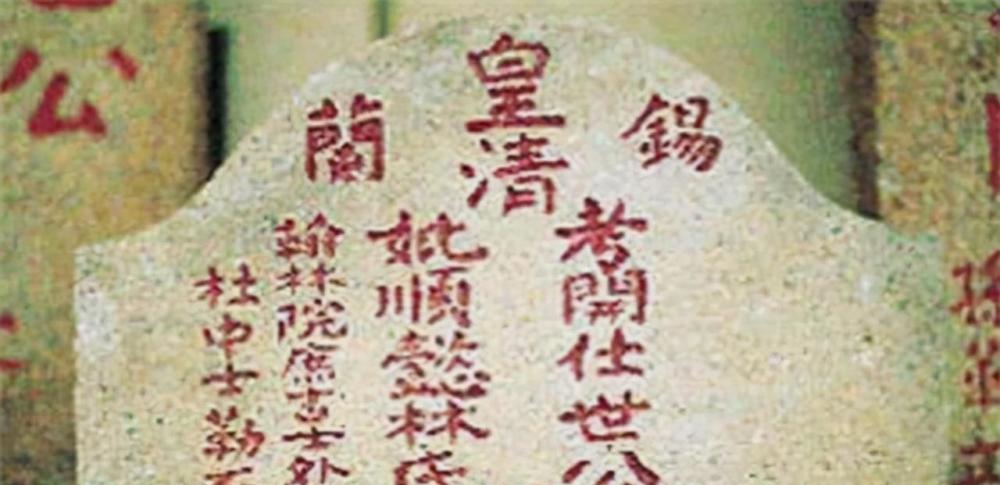 皇清
錫蘭
考開仕世公
妣順懿林氏
翰林院庶吉士外
杜中士勒石
公